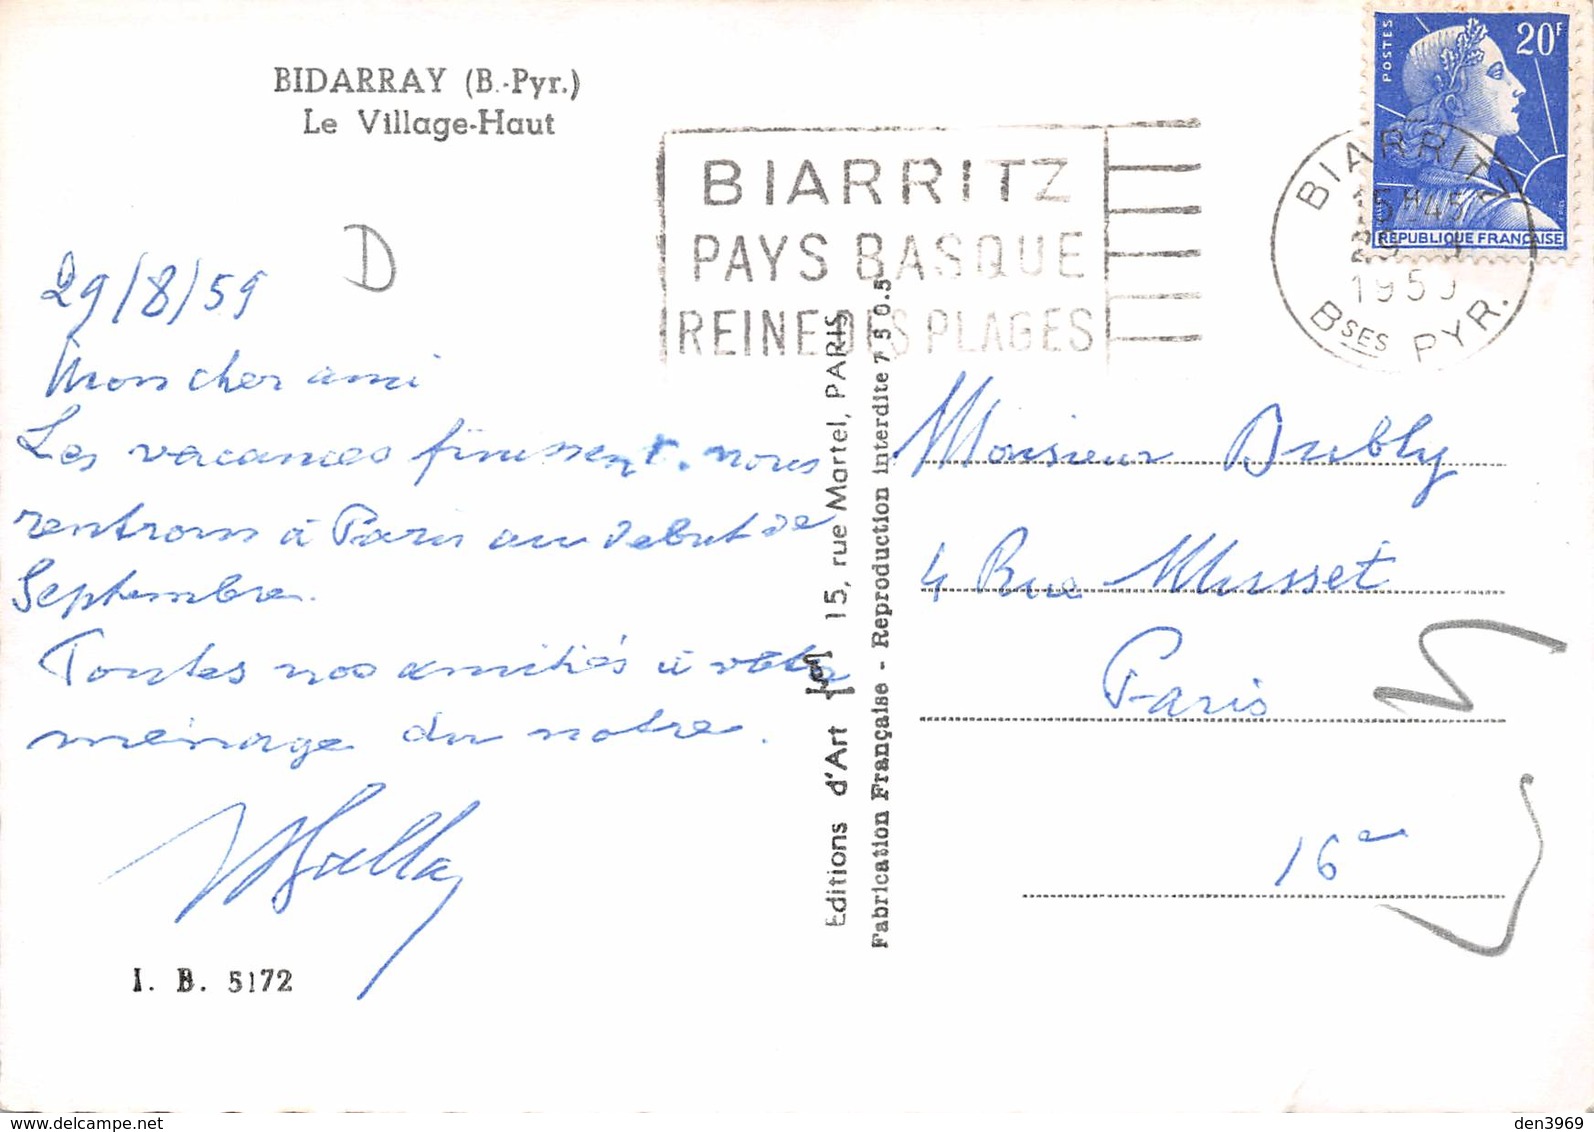 BIDARRAY (B.-Pyr.)
Le Village-Haut
D
29/8/59
Mon cher ami
Les vacances finissent. nous
rentrons à Paris au debut de
Septembre.
Toutes nos amitiés à votre
ménage du notre.
I. B. 5172
BIARRITZ
PAYS BASQUE
REINE DES PLAGES
POSTES
20F
REPUBLIQUE FRANÇAISE
BIARRITZ
15H45
1959
BSES PYR.
Editions d'Art 15, rue Martel, PARIS
Fabrication Française - Reproduction interdite 7 5 0.5
Monsieur Dubly
4 Rue Musset
Paris
16e
www.delcampe.net
den3969